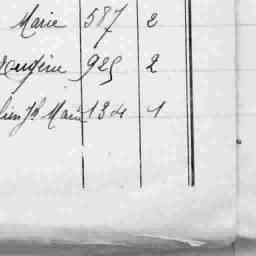 Marie 587 2
Eugène 925 2
Jh Marie 134 1